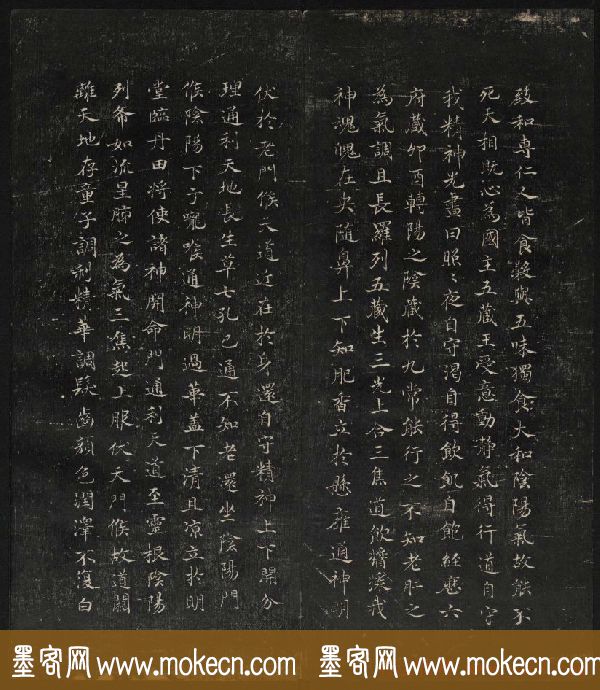 致和專仁人皆食穀與五味獨食大和陰陽氣故能不
死天相既心為國主五藏王受意動靜氣得行道自守
我精神光晝日照〻夜自守渴自得飲飢自飽經歷六
府藏卯酉轉陽之陰藏於九常能行之不知老肝之
為氣調且長羅列五藏生三光上合三焦道飲醬漿我
神魂魄在央隨鼻上下知肥香立於懸雍通神明
伏於老門候天道近在於身還自守精神上下開分
理通利天地長生草七孔已通不知老還坐陰陽門
候陰陽下于嚨喉通神明過華蓋下清且涼立於明
堂臨丹田將使諸神開命門通利天道至靈根陰陽
列布如流星肺之為氣三焦起上服伏天門候故道闚
離天地存童子調利精華調髮齒顏色潤澤不復白
墨客网 www.mokecn.com 墨客网 www.mokecn.com